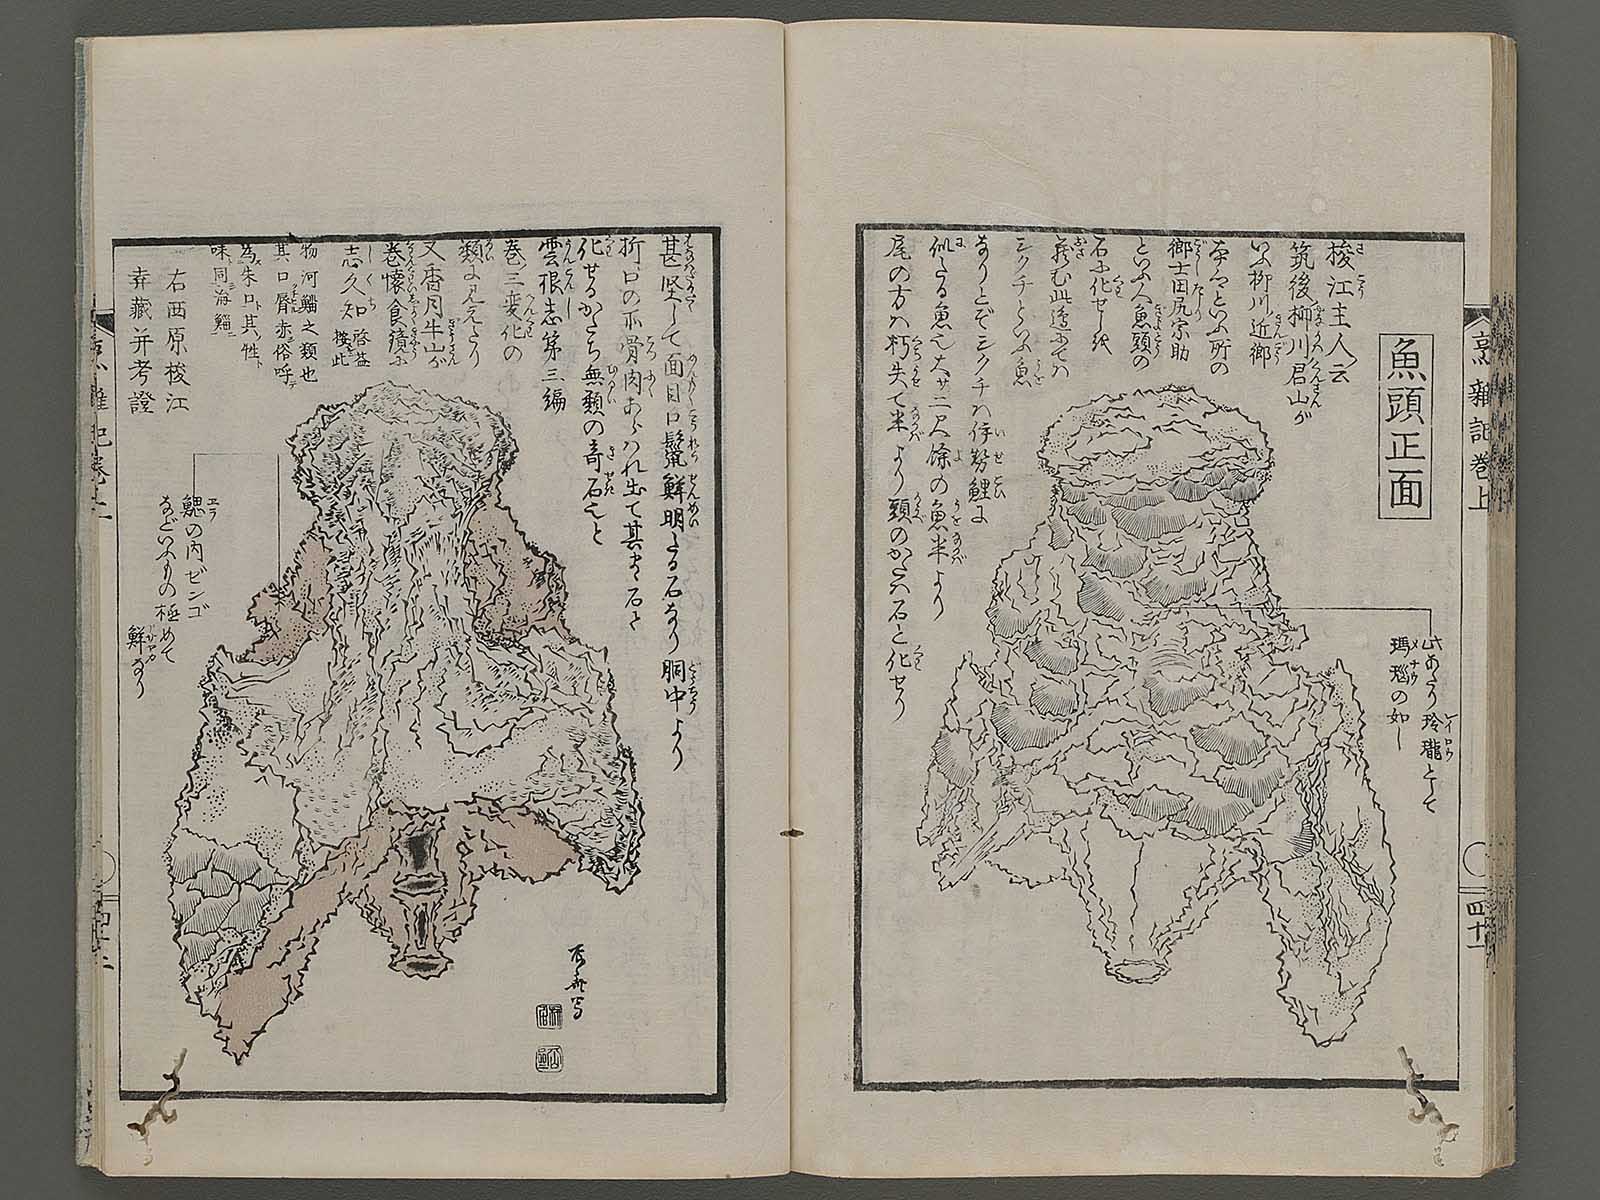 烹雜記巻上
四十一
魚頭正面
梭江主人云
筑後柳川君山が
いふ柳川近郷
なる といふ所の
郷士田尻宗助
といふ人魚頭の
石に化せしを
蔵む此邊にては
シクチといふ魚
なりとぞシクチハ伊勢鯉に
似たる魚也大サ二尺餘の魚半より
尾の方ハ朽失て半より頭のかたハ石と化せり
此あたり玲瓏として
瑪瑙の如し
甚堅して面目口鬣鮮明なる石なり胴中より
折口の所骨肉あらハれ出て其まゝ石と
化せるかたち無類の奇石也と
雲根志第三編
巻ノ三変化の
類に見えたり
又香月牛山が
巻懐食鏡に
志久知 啓益按此
物河鯔之類也
其口唇赤俗呼
為朱口ト其ノ性
味同海鯔ニ
右西原梭江
弆藏并考證
鰓の内ビンゴ
などいふもの極めて
鮮なり